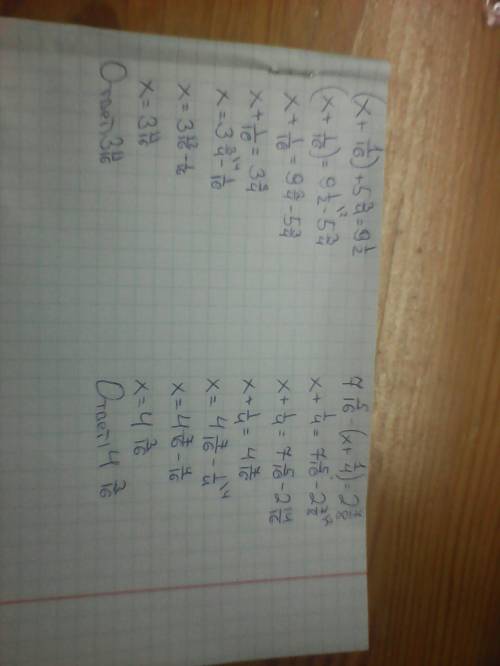 (x + 1/16) + 5 3/4 = 9 1/2
(x + 1/16) = 9 1/2 \2 - 5 3/4
x + 1/16 = 9 2/4 - 5 3/4
x + 1/16 = 3 3/4
x = 3 3/4 \4 - 1/16
x = 3 12/16 - 1/16
x = 3 11/16
Ответ: 3 11/16
7 5/16 - (x + 1/4) = 2 7/8
x + 1/4 = 7 5/16 - 2 7/8 \2
x + 1/4 = 7 5/16 - 2 14/16
x + 1/4 = 4 7/16
x = 4 7/16 - 1/4 \4
x = 4 7/16 - 4/16
x = 4 3/16
Ответ: 4 3/16